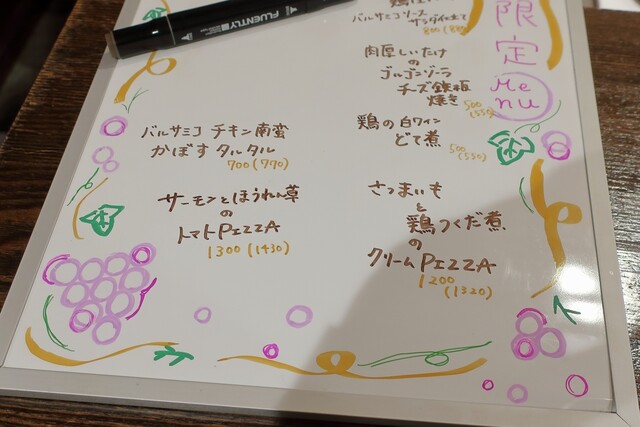 FLUENTLY
限定
Menu
バルサミコソース
サラダ仕立て
800(880)
肉厚しいたけ
の
ゴルゴンゾーラ
チーズ鉄板
焼き
500
(550)
鶏の白ワイン
どて煮
500
(550)
バルサミコ チキン南蛮
かぼす タルタル
700(770)
さつまいも
と
鶏つくだ煮
の
クリームPIZZA
1200
(1320)
サーモンとほうれん草
の
トマトPIZZA
1300(1430)